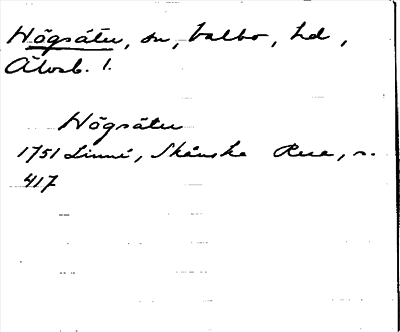 Högsäter, sn, Valbo, hd,
Älvsb. l.
Högsäter
1751 Linné, Skånska Resa, s.
417